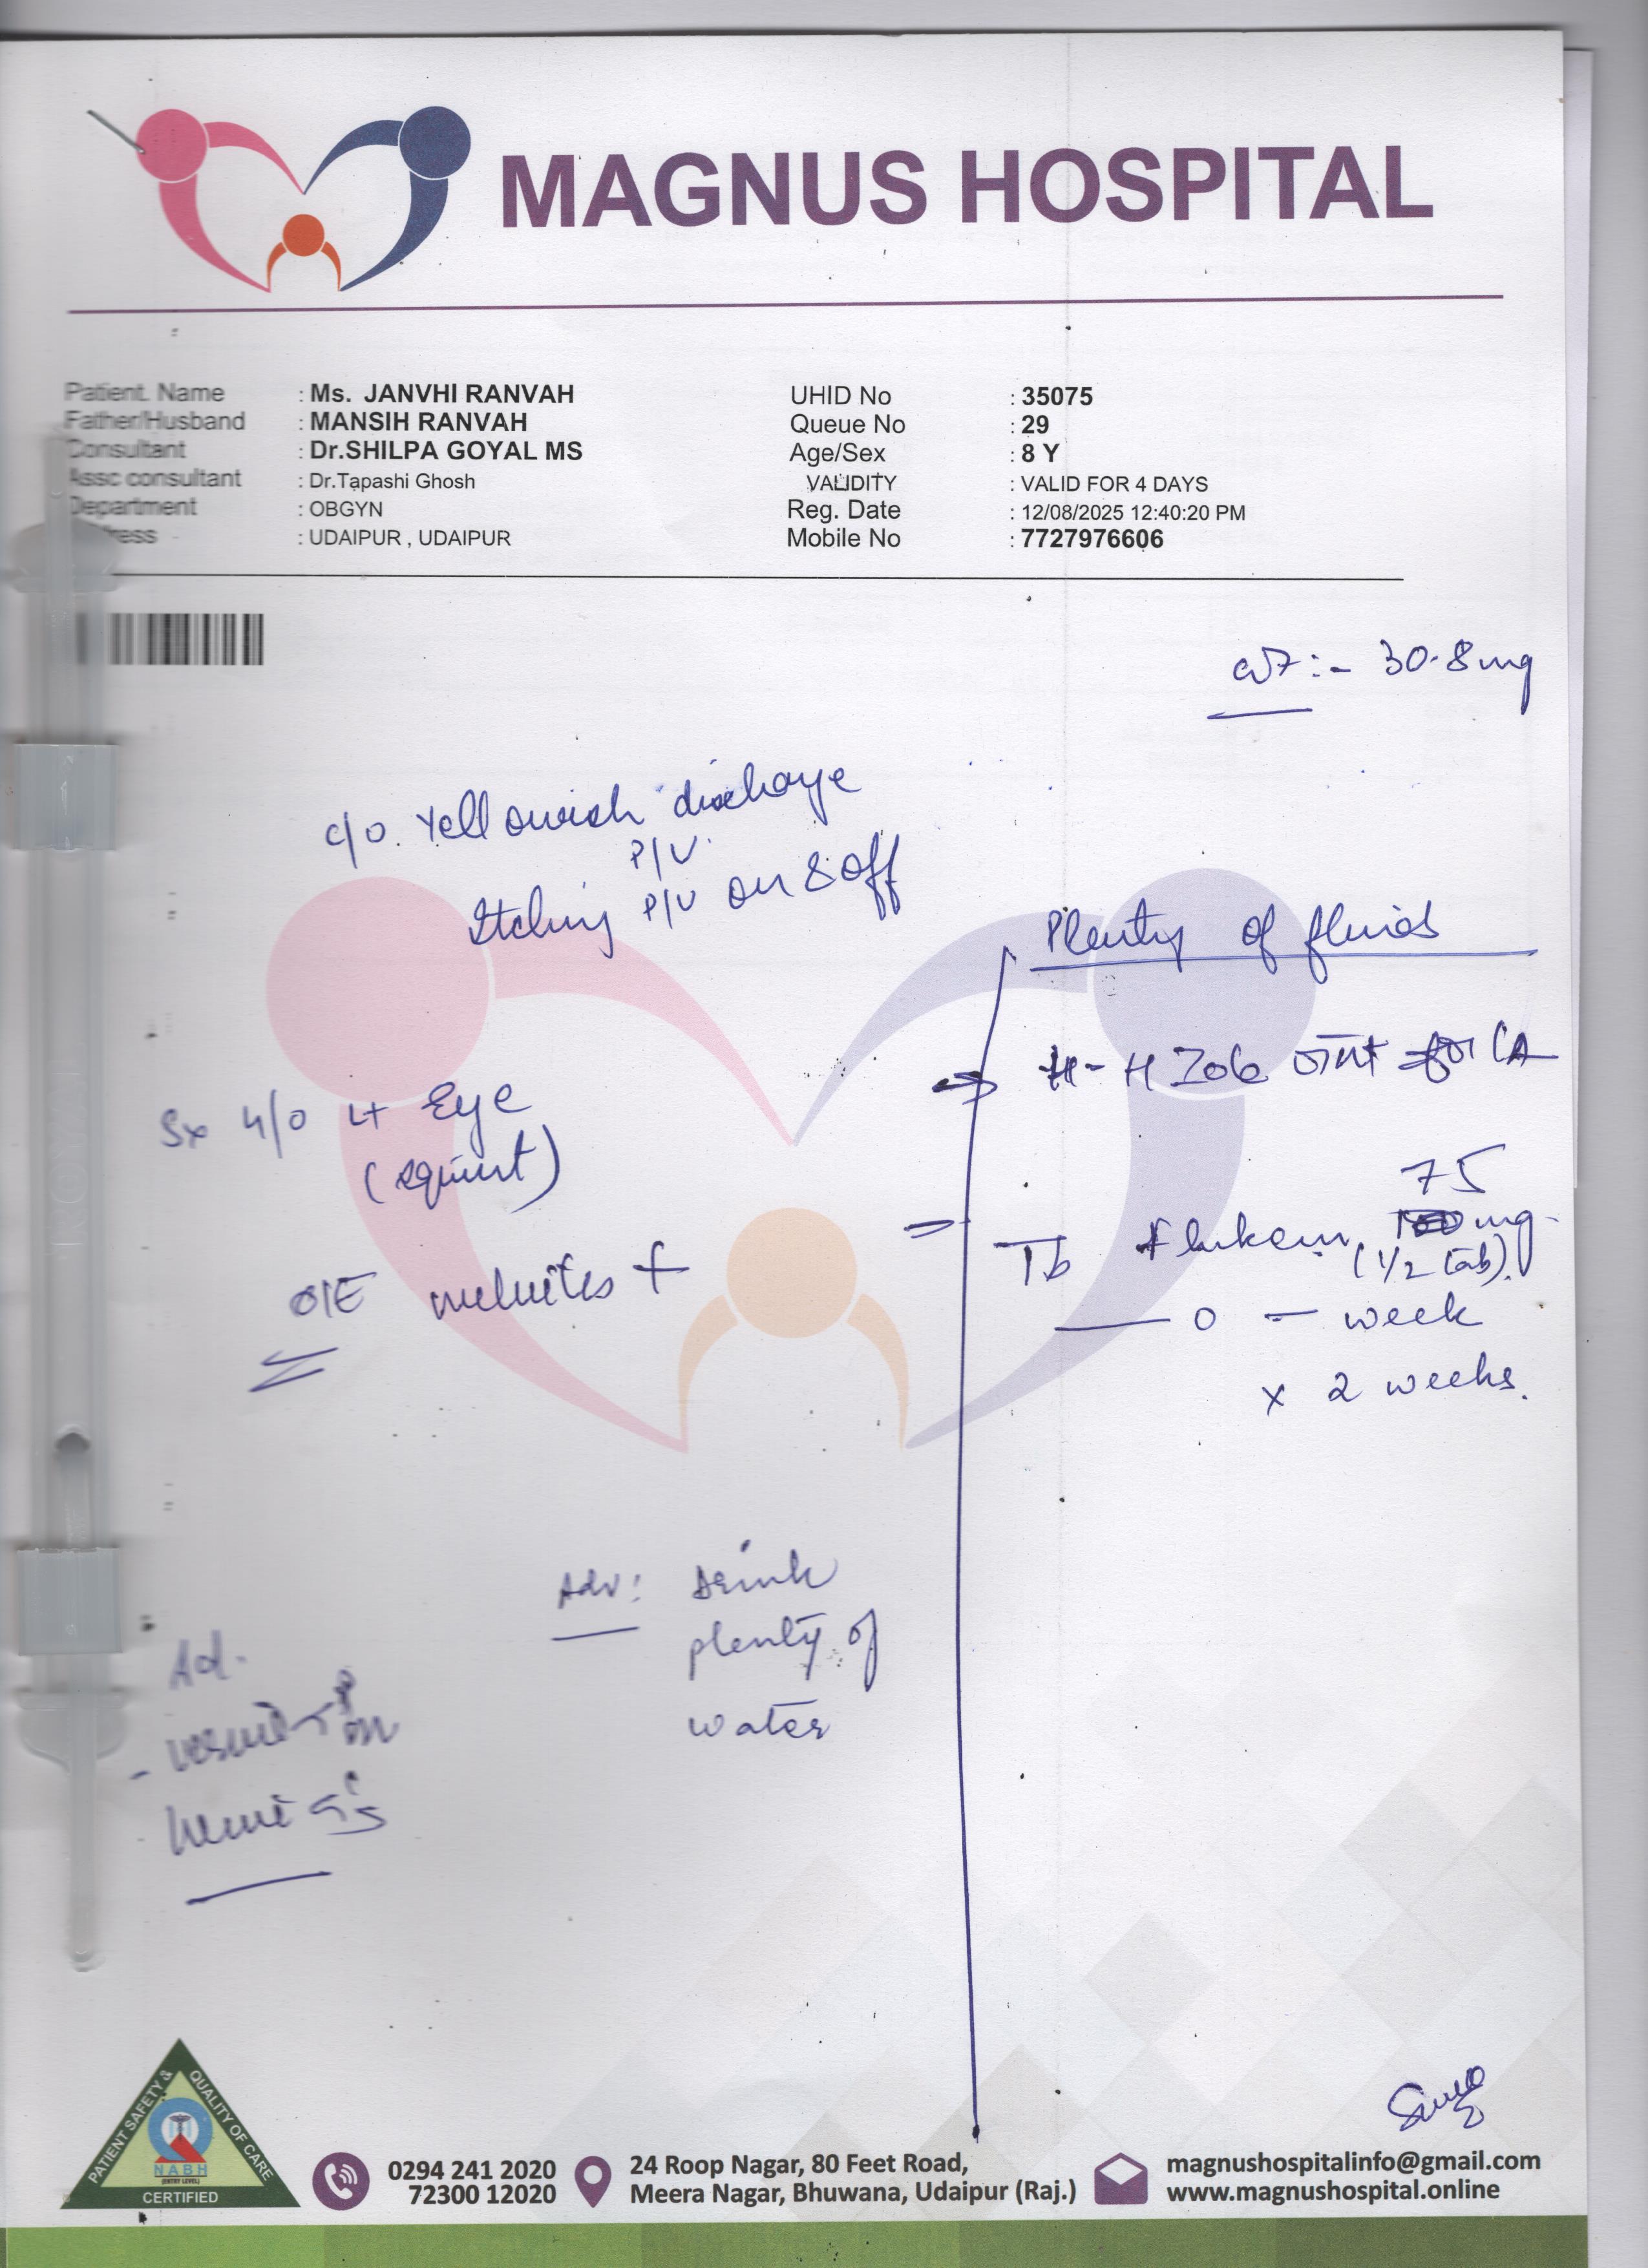 MAGNUS HOSPITAL
Patient. Name : Ms. JANVHI RANVAH UHID No : 35075
Father/Husband : MANSIH RANVAH Queue No : 29
Consultant : Dr.SHILPA GOYAL MS Age/Sex : 8 Y
Assc consultant : Dr.Tapashi Ghosh VALIDITY : VALID FOR 4 DAYS
Department : OBGYN Reg. Date : 12/08/2025 12:40:20 PM
ress : UDAIPUR , UDAIPUR Mobile No : 7727976606
:- 30.8 mg
c/o. Yellowish discharge
P/V.
Itching P/V on & off
Plenty of fluids
oint for LA
Sx h/o Lt Eye
(squint)
75
Tb mg
(1/2 tab).
O/E +
0 - week
x 2 weeks.
Adv: Drink
plenty of
water
Ad.
PATIENT SAFETY & QUALITY OF CARE
NABH
(ENTRY LEVEL)
CERTIFIED
0294 241 2020
72300 12020
24 Roop Nagar, 80 Feet Road,
Meera Nagar, Bhuwana, Udaipur (Raj.)
magnushospitalinfo@gmail.com
www.magnushospital.online